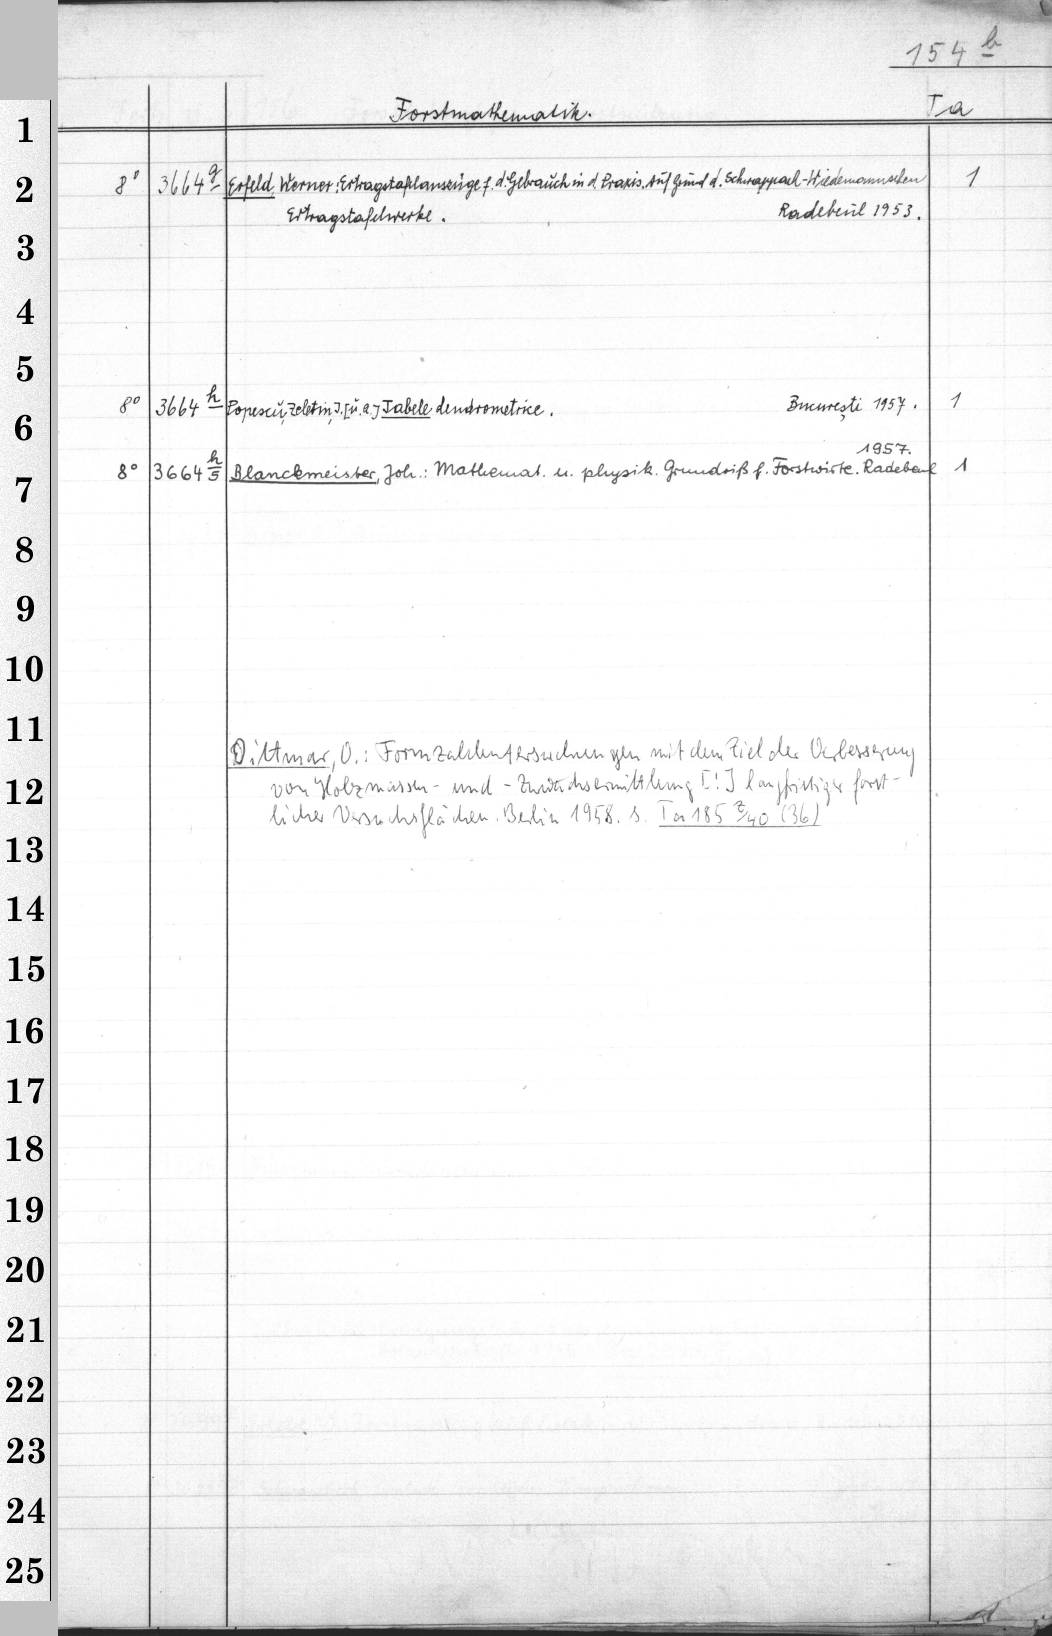 154 b
Forstmathematik. Ta
1
2 8° 3664 g Erfeld, Werner: Ertragstaflauszüge f. d. Gebrauch in d. Praxis. Auf Grund d. Schwappach-Wiedemannschen 1
Ertragstafelwerke. Radebeul 1953.
3
4
5
8° 3664 h Popescu, Zeletin, I. [u. a.] Tabele dendrometrice. Bucureşti 1957. 1
6
1957.
7 8° 3664 h/5 Blanckmeister, Joh.: Mathemat. u. physik. Grundriß f. Forstwirte. Radebeul 1
8
9
10
11
Dittmar, O.: Formzahluntersuchungen mit dem Ziel der Verbesserung
12 von Holzmassen- und -Zuwachsermittlung [!] langfristiger forst-
licher Versuchsflächen. Berlin 1958. s. Ta 185 z/40 (36)
13
14
15
16
17
18
19
20
21
22
23
24
25